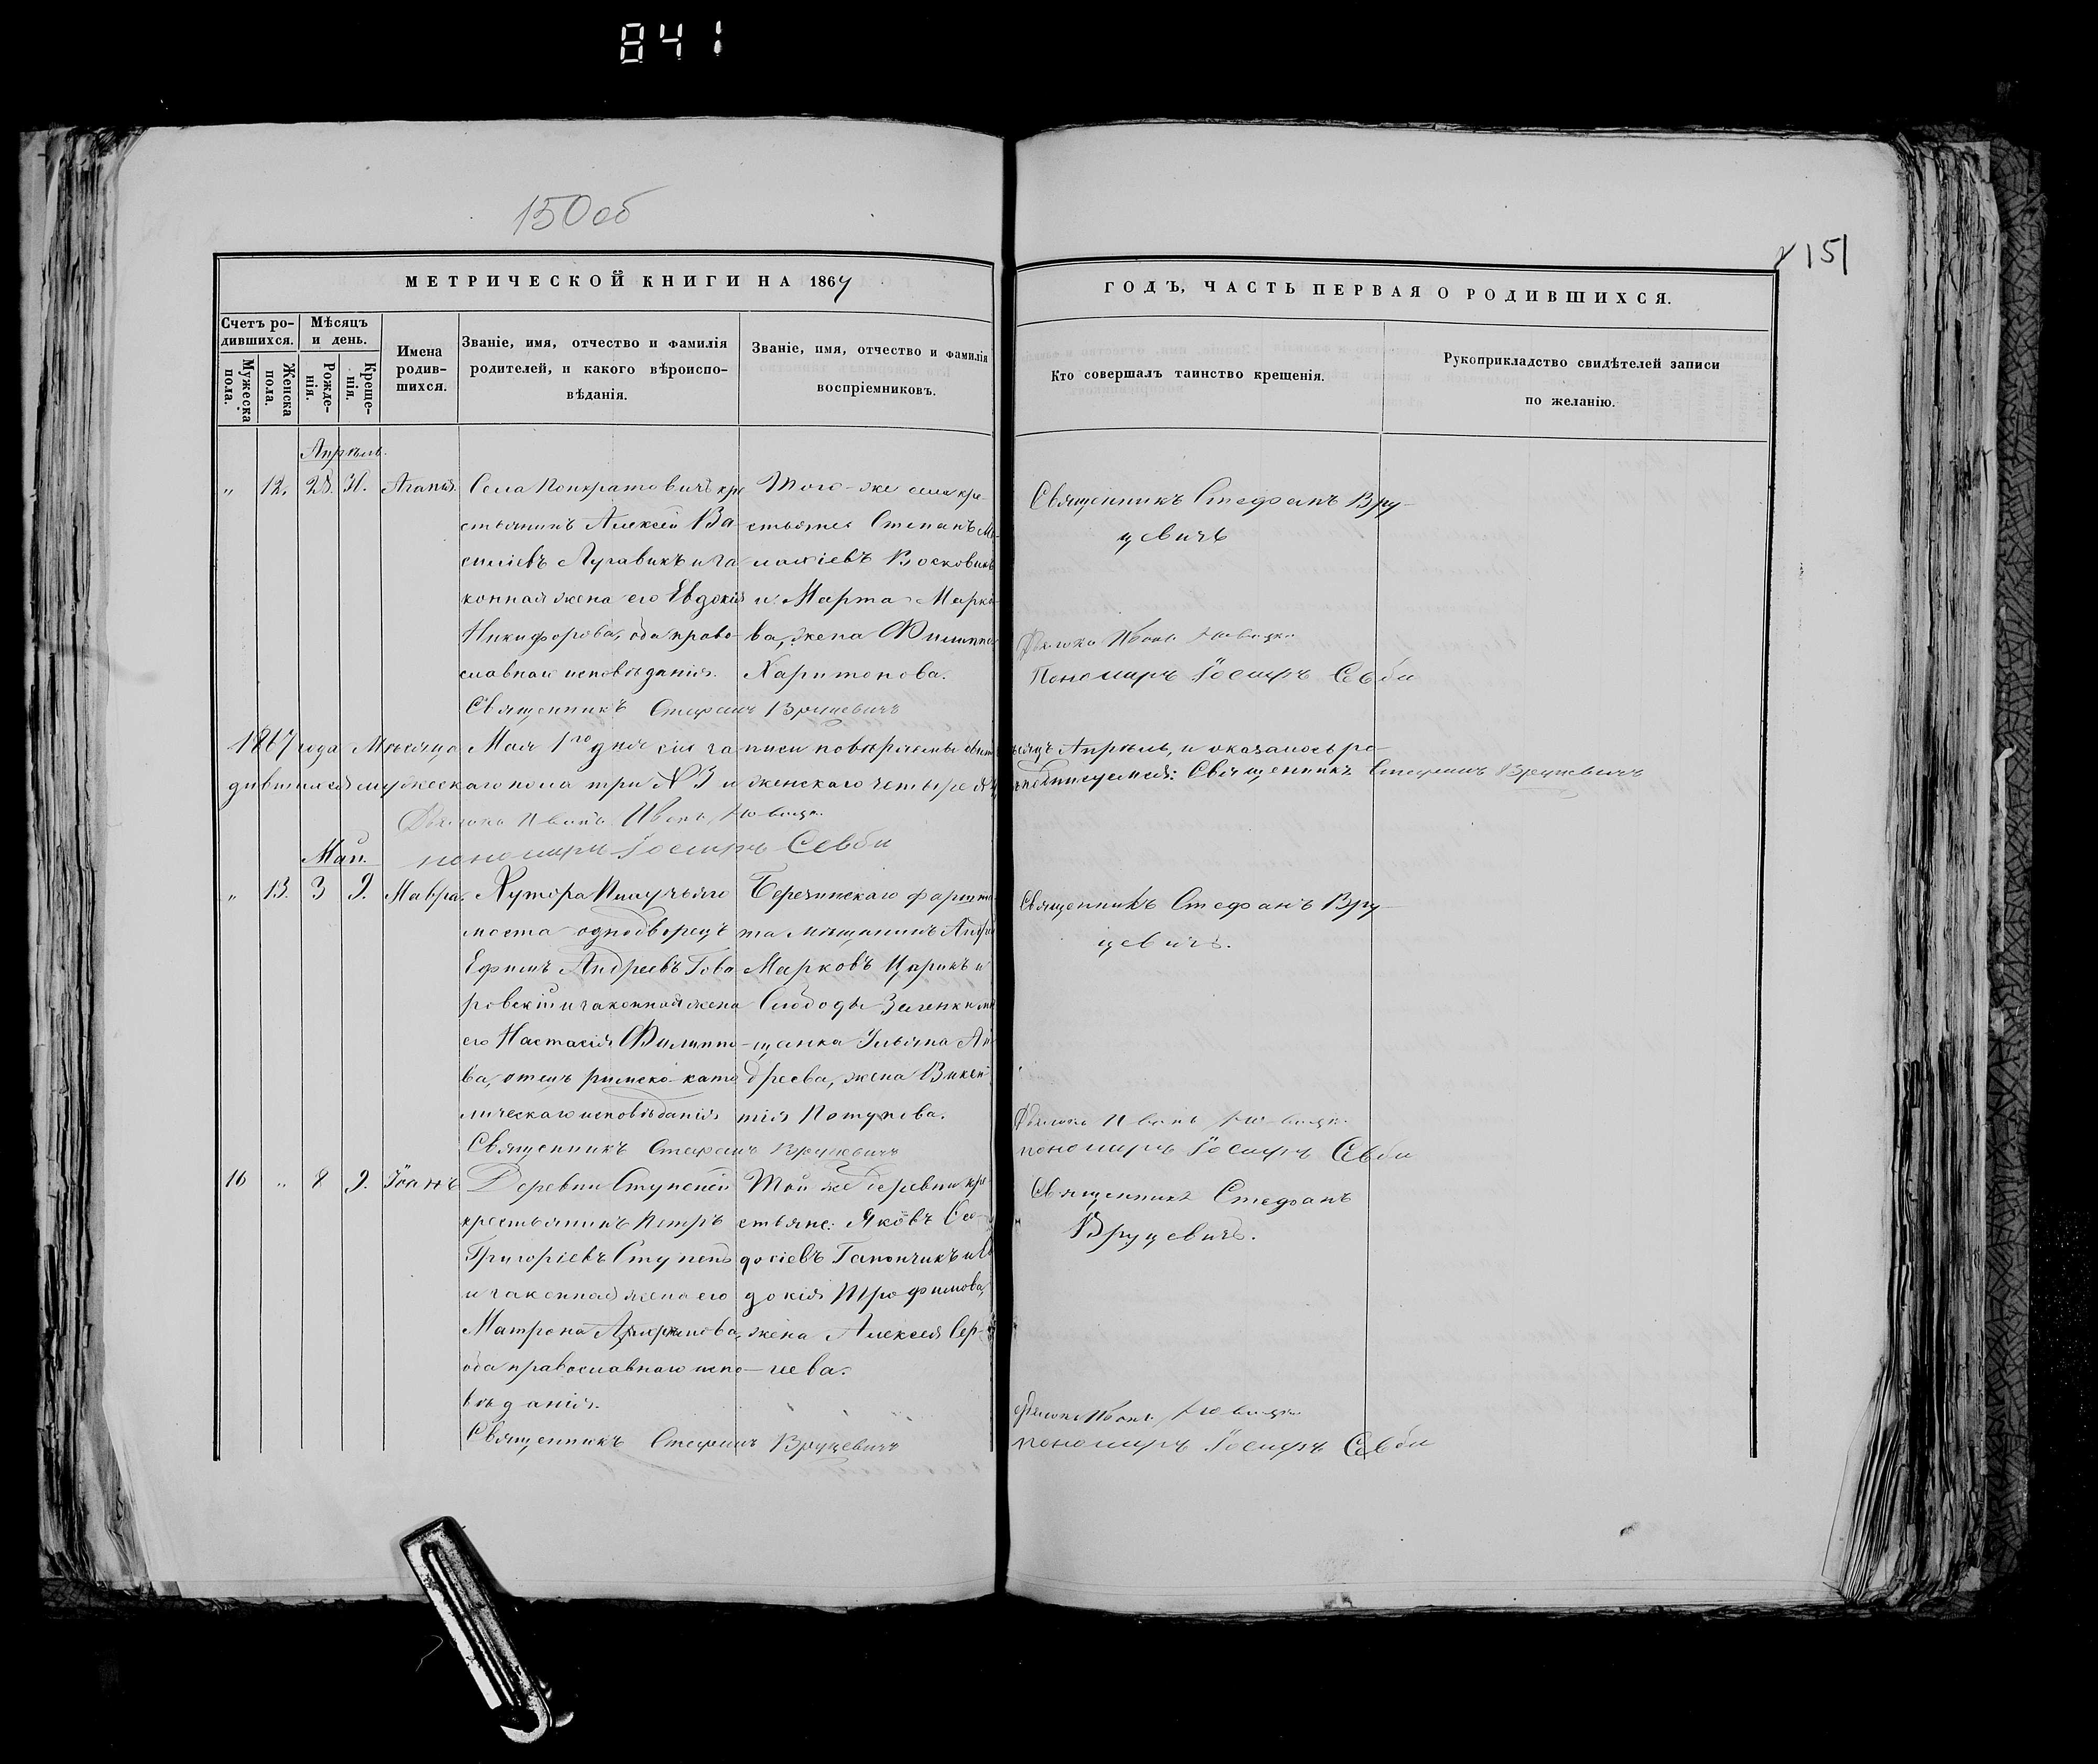 841
150 об
151
МЕТРИЧЕСКОЙ КНИГИ НА 1867
Счетъ ро-
дившихся.
Мужеска
пола.
Женска
пола.
Мѣсяцъ
и день.
Рожде-
нія.
Креще-
нія.
Имена
родив-
шихся.
Званіе, имя, отчество и фамилія
родителей, и какого вѣроиспо-
вѣданія.
Званіе, имя, отчество и фамилія
воспріемниковъ.
ГОДЪ, ЧАСТЬ ПЕРВАЯ О РОДИВШИХСЯ.
Кто совершалъ таинство крещенія.
Рукоприкладство свидѣтелей записи
по желанію.
Апрѣль.
„ 12. 28.
Села Понкратовичъ кре
стьянинъ Алексѣй Ва-
силіевъ и за
конная жена его Евдокія
Никифорова, оба право-
славнаго исповѣданія.
Священникъ Стефанъ Вруцевичъ
Того-же села кре-
стьяне Степанъ
и Марта Марко
ва, жена Филиппа
Харитонова.
Священникъ Стефанъ Вру-
цевичъ
Пономарь Іосифъ
1867 года Мѣсяца Мая 1го дня сіи записи повѣряемы мѣсяцъ Апрѣль, и оказалось ро-
дившихся мужескаго пола три № 3 и женскаго четыре подписуемся: Священникъ Стефанъ Вруцевичъ
пономарь Іосифъ
Май.
„ 13. 3 9. Мавра.
Хутора
моста однодворецъ
Ефимъ Андреевъ Гово
ровскій и законная жена
его Настасія Филиппо-
ва, отецъ римско-като
лическаго исповѣданія
Священникъ Стефанъ Вруцевичъ
Березинскаго
та мѣщанинъ
Марковъ Царикъ и
Слободы Зеленки мѣ
щанка Ульяна Ан
дреева, жена Викен
тія
Священникъ Стефанъ Вру-
цевичъ.
пономарь Іосифъ
16 „ 8 9. Іоаннъ
Деревни Ступеней
крестьянинъ Петръ
Григоріевъ Ступень
и законная жена его
Матрона
оба православнаго испо-
вѣданія.
Священникъ Стефанъ Вруцевичъ
Той же деревни кре
стьяне: Яковъ Ѳео-
досіевъ Гапончикъ и Ев
докія Трофимова,
жена Алексея Сер-
геева.
Священникъ Стефанъ
Вруцевичъ.
пономарь Іосифъ